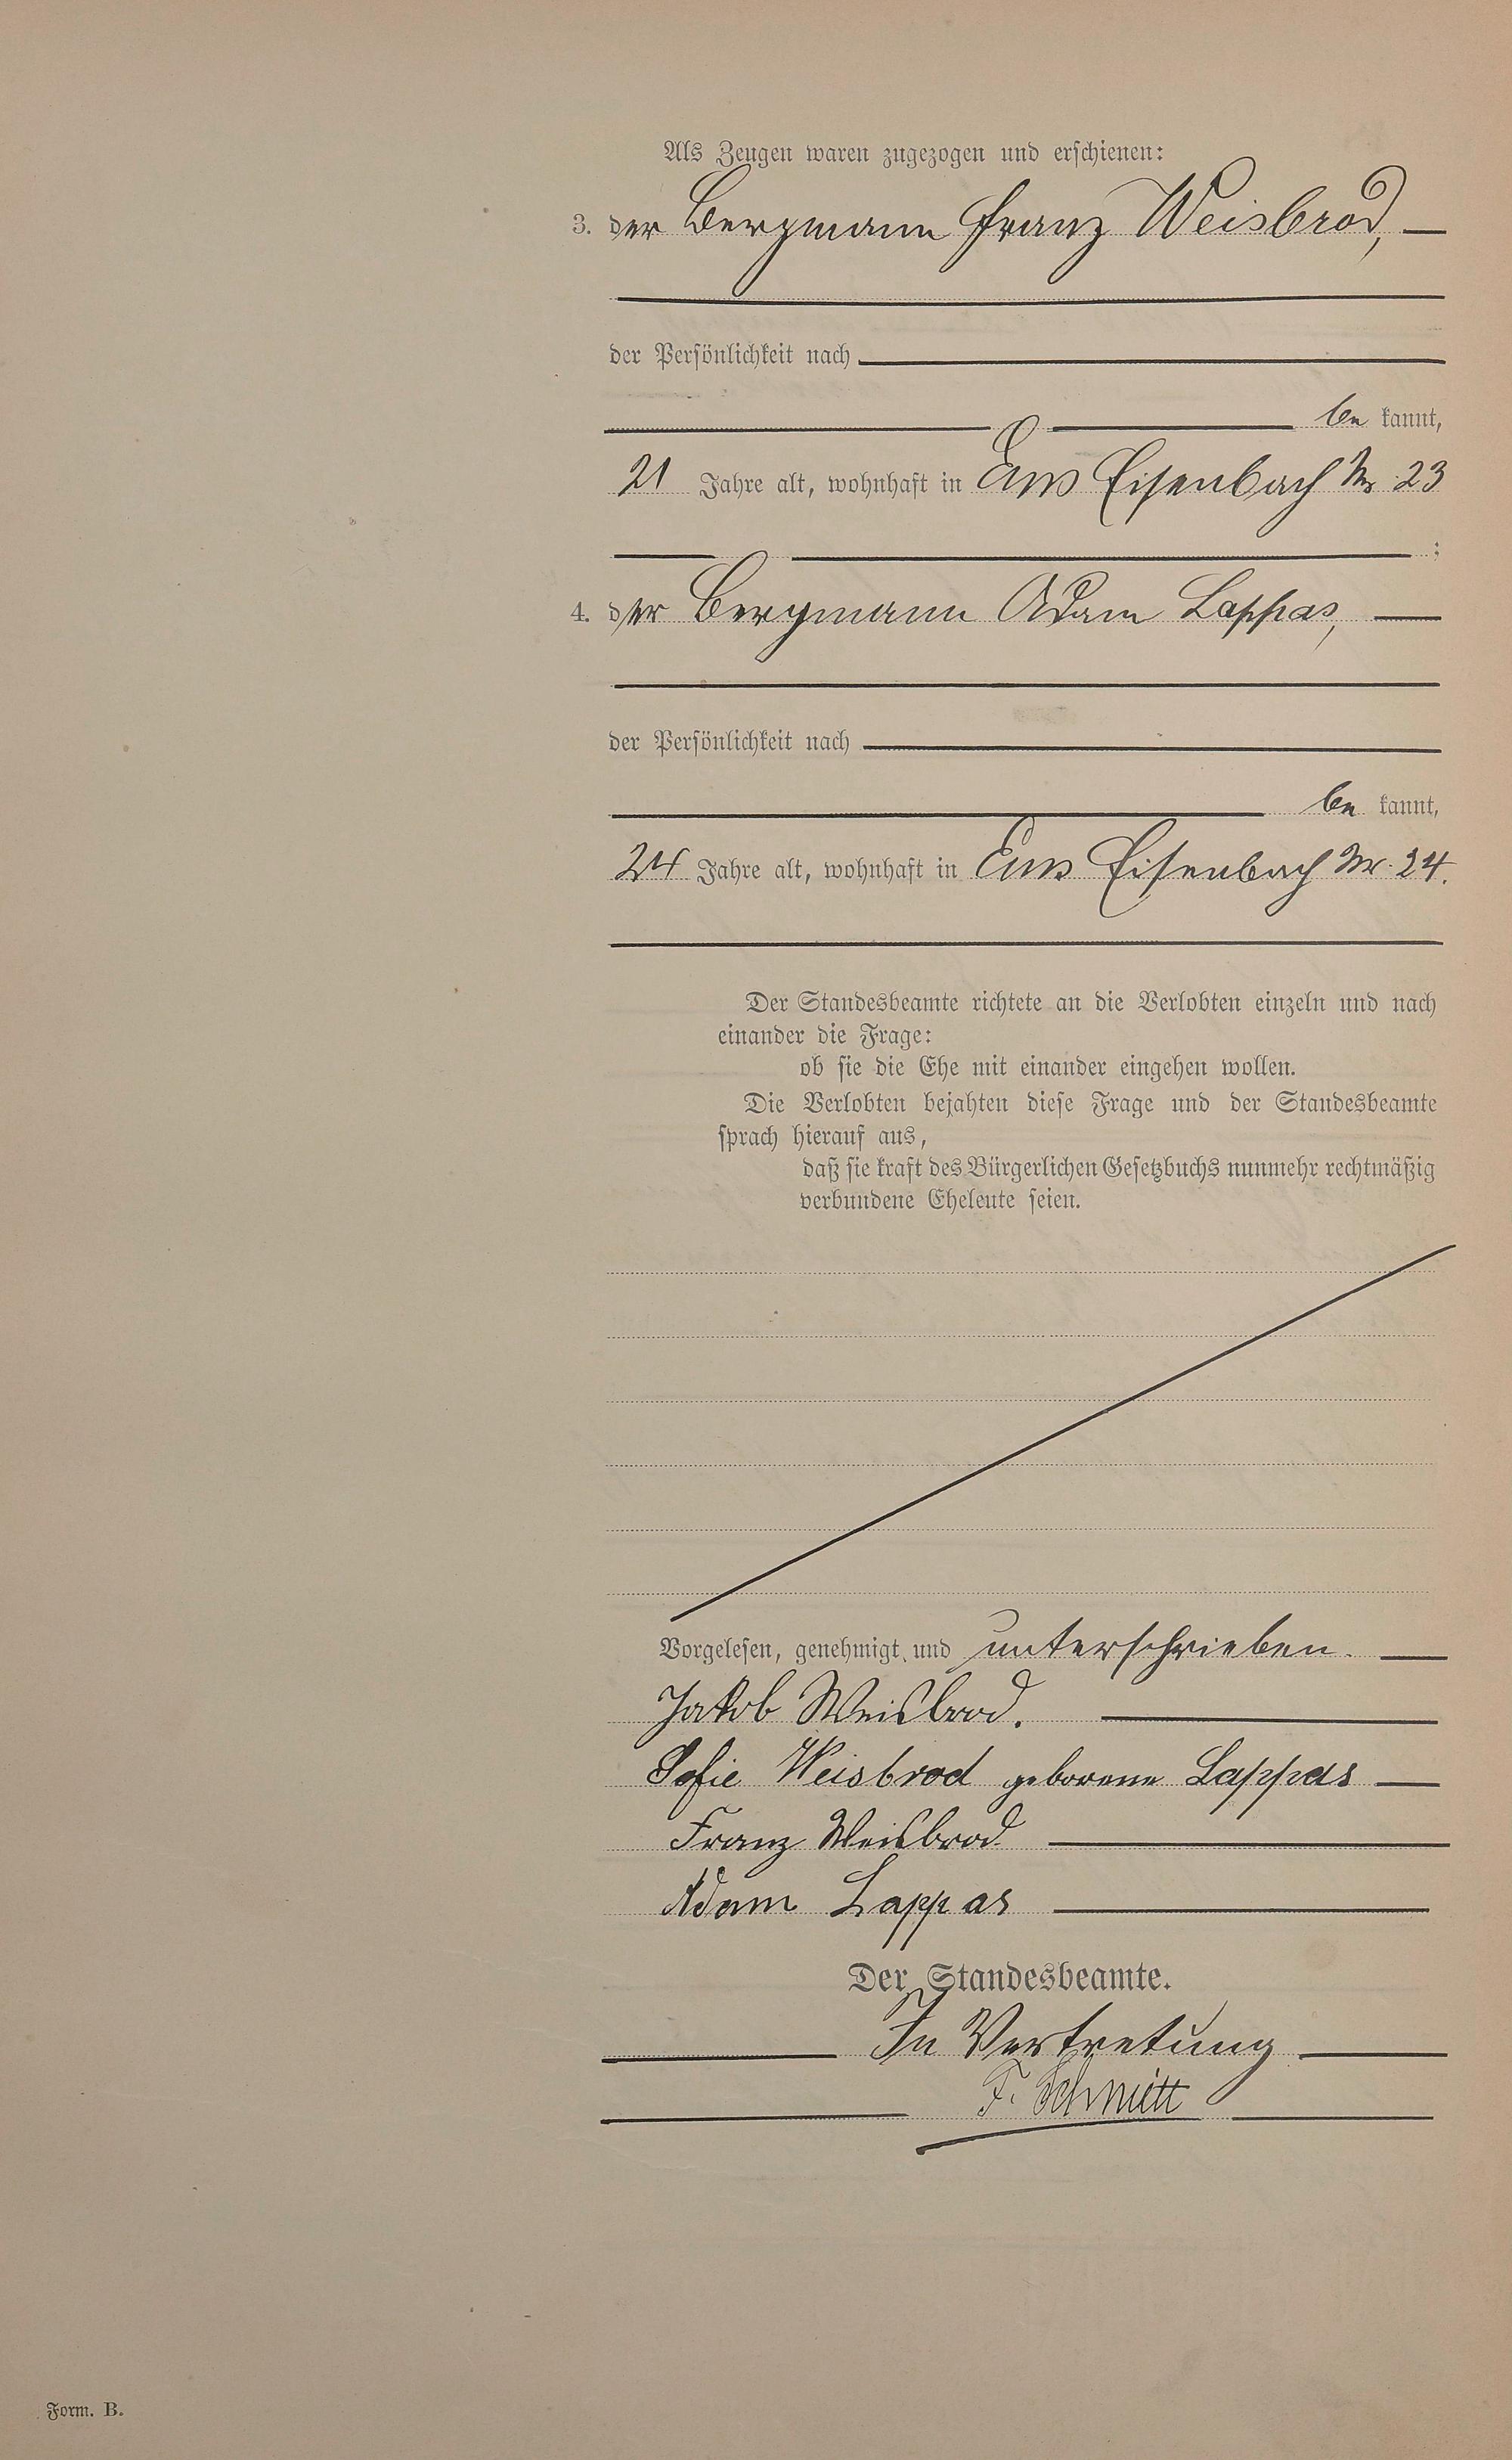 Als Zeugen waren zugezogen und erschienen:
3. der Bergmann Franz Weisbrod,
der Persönlichkeit nach
be kannt,
21 Jahre alt, wohnhaft in Ems Eisenbach Nr 23
;
4. der Bergmann Adam Lappas,
der Persönlichkeit nach
be kannt,
24 Jahre alt, wohnhaft in Ems Eisenbach Nr. 24.
Der Standesbeamte richtete an die Verlobten einzeln und nach
einander die Frage:
ob sie die Ehe mit einander eingehen wollen.
Die Verlobten bejahten diese Frage und der Standesbeamte
sprach hierauf aus,
daß sie kraft des Bürgerlichen Gesetzbuchs nunmehr rechtmäßig
verbundene Eheleute seien.
Vorgelesen, genehmigt und unterschrieben.
Jakob Weisbrod.
Sofie Weisbrod geborene Lappas
Franz Weisbrod
Adam Lappas
Der Standesbeamte.
In Vertretung
F. Schmitt
Form. B.